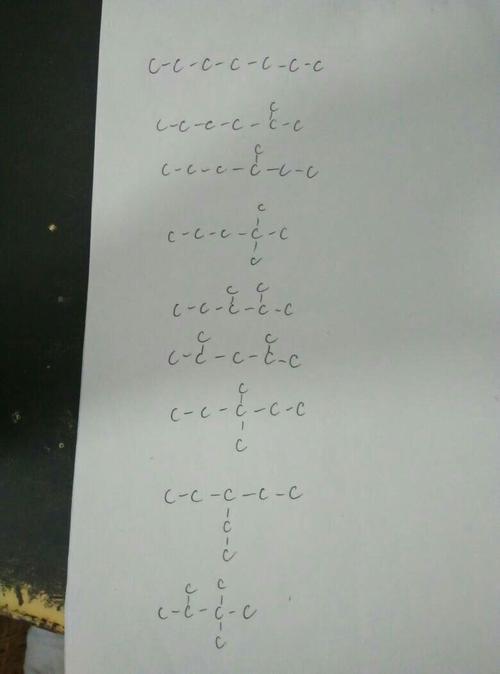 C-C-C-C-C-C-C
C
C-C-C-C-C-C
C
C-C-C-C-C-C
C
C-C-C-C-C
C
C C
C-C-C-C-C
C C
C-C-C-C-C
C
C-C-C-C-C
C
C-C-C-C-C
C
C
C C
C-C-C-C
C